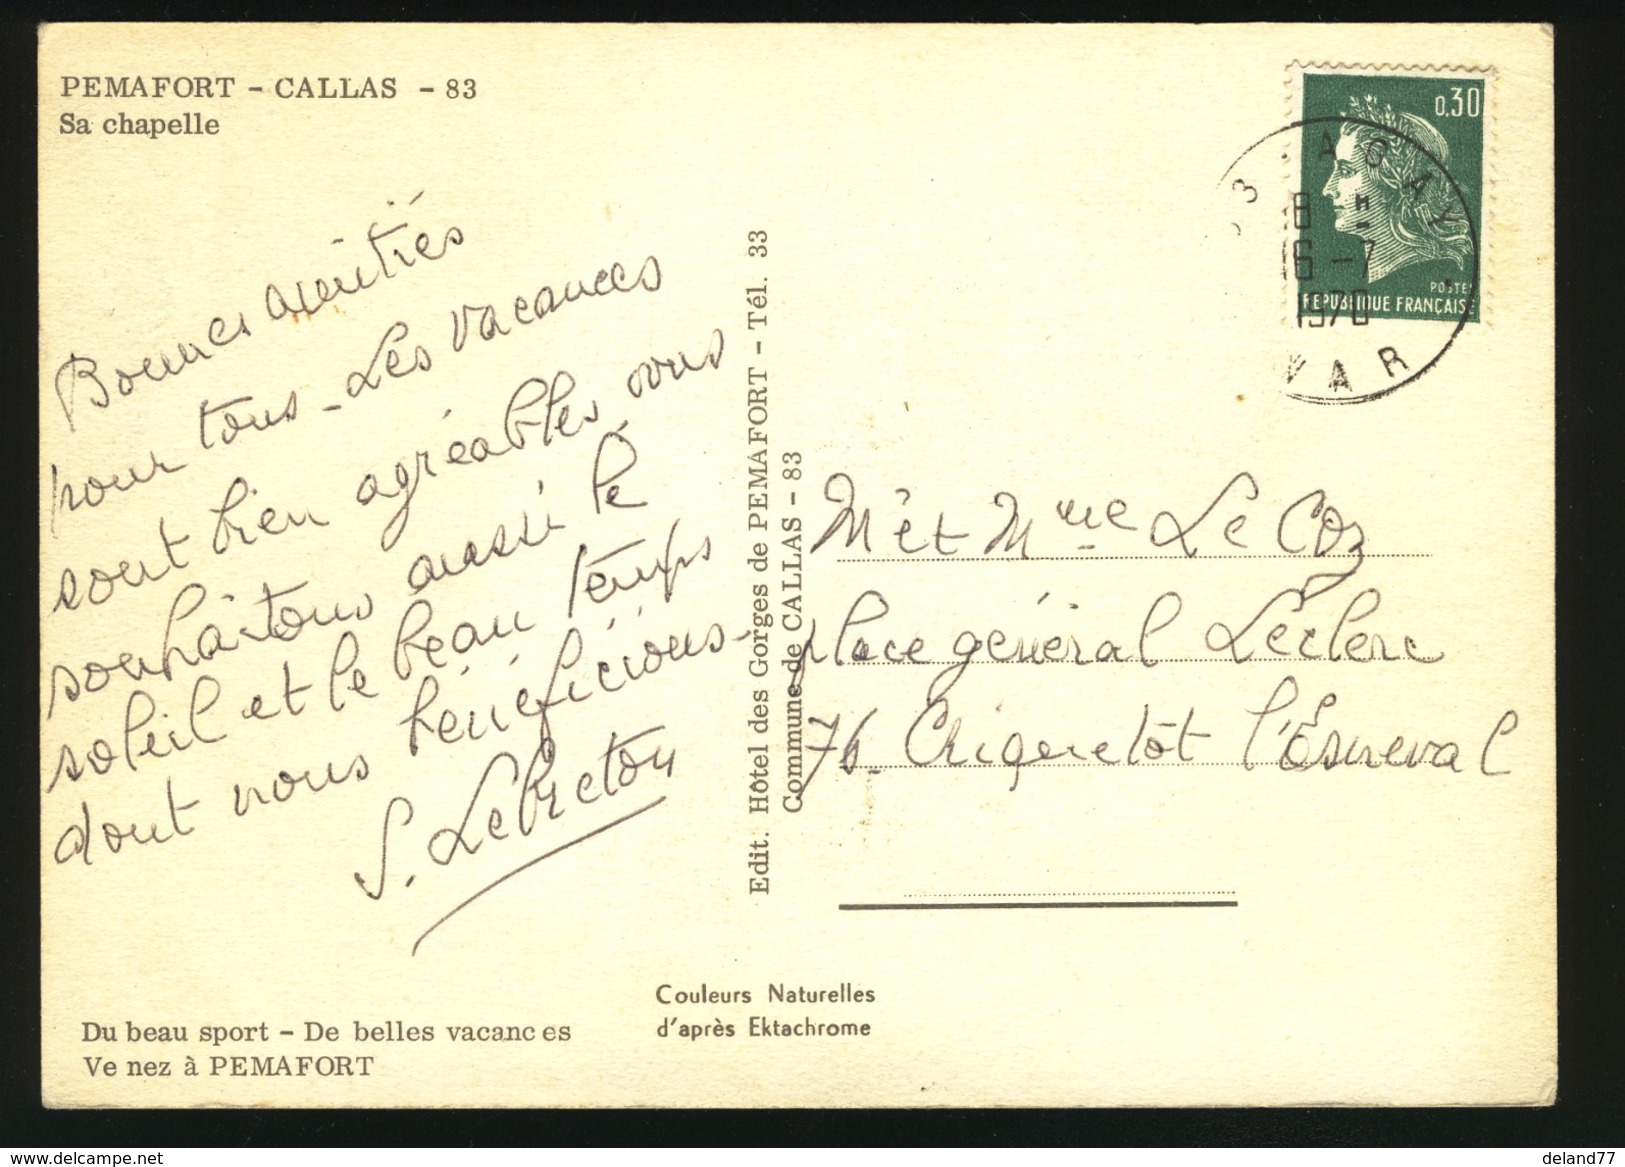 PEMAFORT - CALLAS - 83
Sa chapelle
Bonnes amitiés
pour tous - Les vacances
sont bien agréables, vous
souhaitons aussi le
soleil et le beau temps
dont nous bénéficions -
S. Lebreton
Du beau sport - De belles vacances
Ve nez à PEMAFORT
Couleurs Naturelles
d'après Ektachrome
Edit. Hôtel des Gorges de PEMAFORT - Tél. 33
Commune de CALLAS - 83
0,30
POSTES
REPUBLIQUE FRANÇAISE
83 AGAY
18 H
16 - 7
1970
VAR
M et Mme Le Coz
place général Leclerc
76 Criquetot l'Esneval
www.delcampe.net
deland77